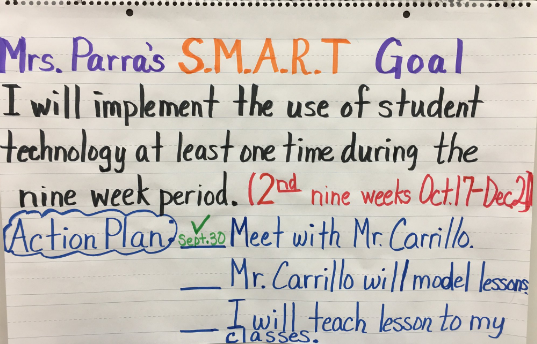 Mrs. Parra's S.M.A.R.T Goal
I will implement the use of student
technology at least one time during the
nine week period. (2nd nine weeks Oct.17-Dec.21)
Action Plan: ✓ Sept.30 Meet with Mr. Carrillo.
___ Mr. Carrillo will model lessons
___ I will teach lesson to my
classes.